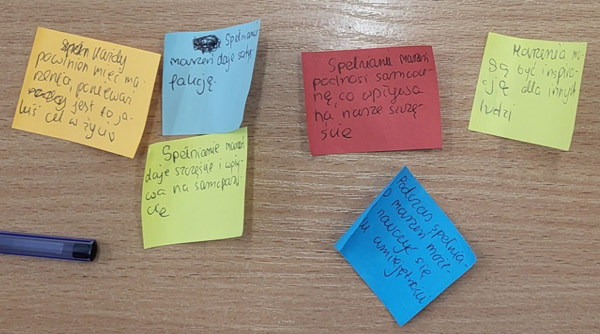 Każdy
powinien mieć ma
rzenia ponieważ
jest to ja
kiś cel w życiu
Spełnianie
marzeń daje satys
fakcję.
Spełnianie marzeń
podnosi samooce
nę, co wpływa
na nasze szczę-
ście
Marzenia mo
gą być inspira
cją dla innych
ludzi
Spełnianie marzeń
daje szczęście i wpły
wa na samopoczu
cie
Podczas spełnia-
marzeń może
nauczyć się
umiejętności